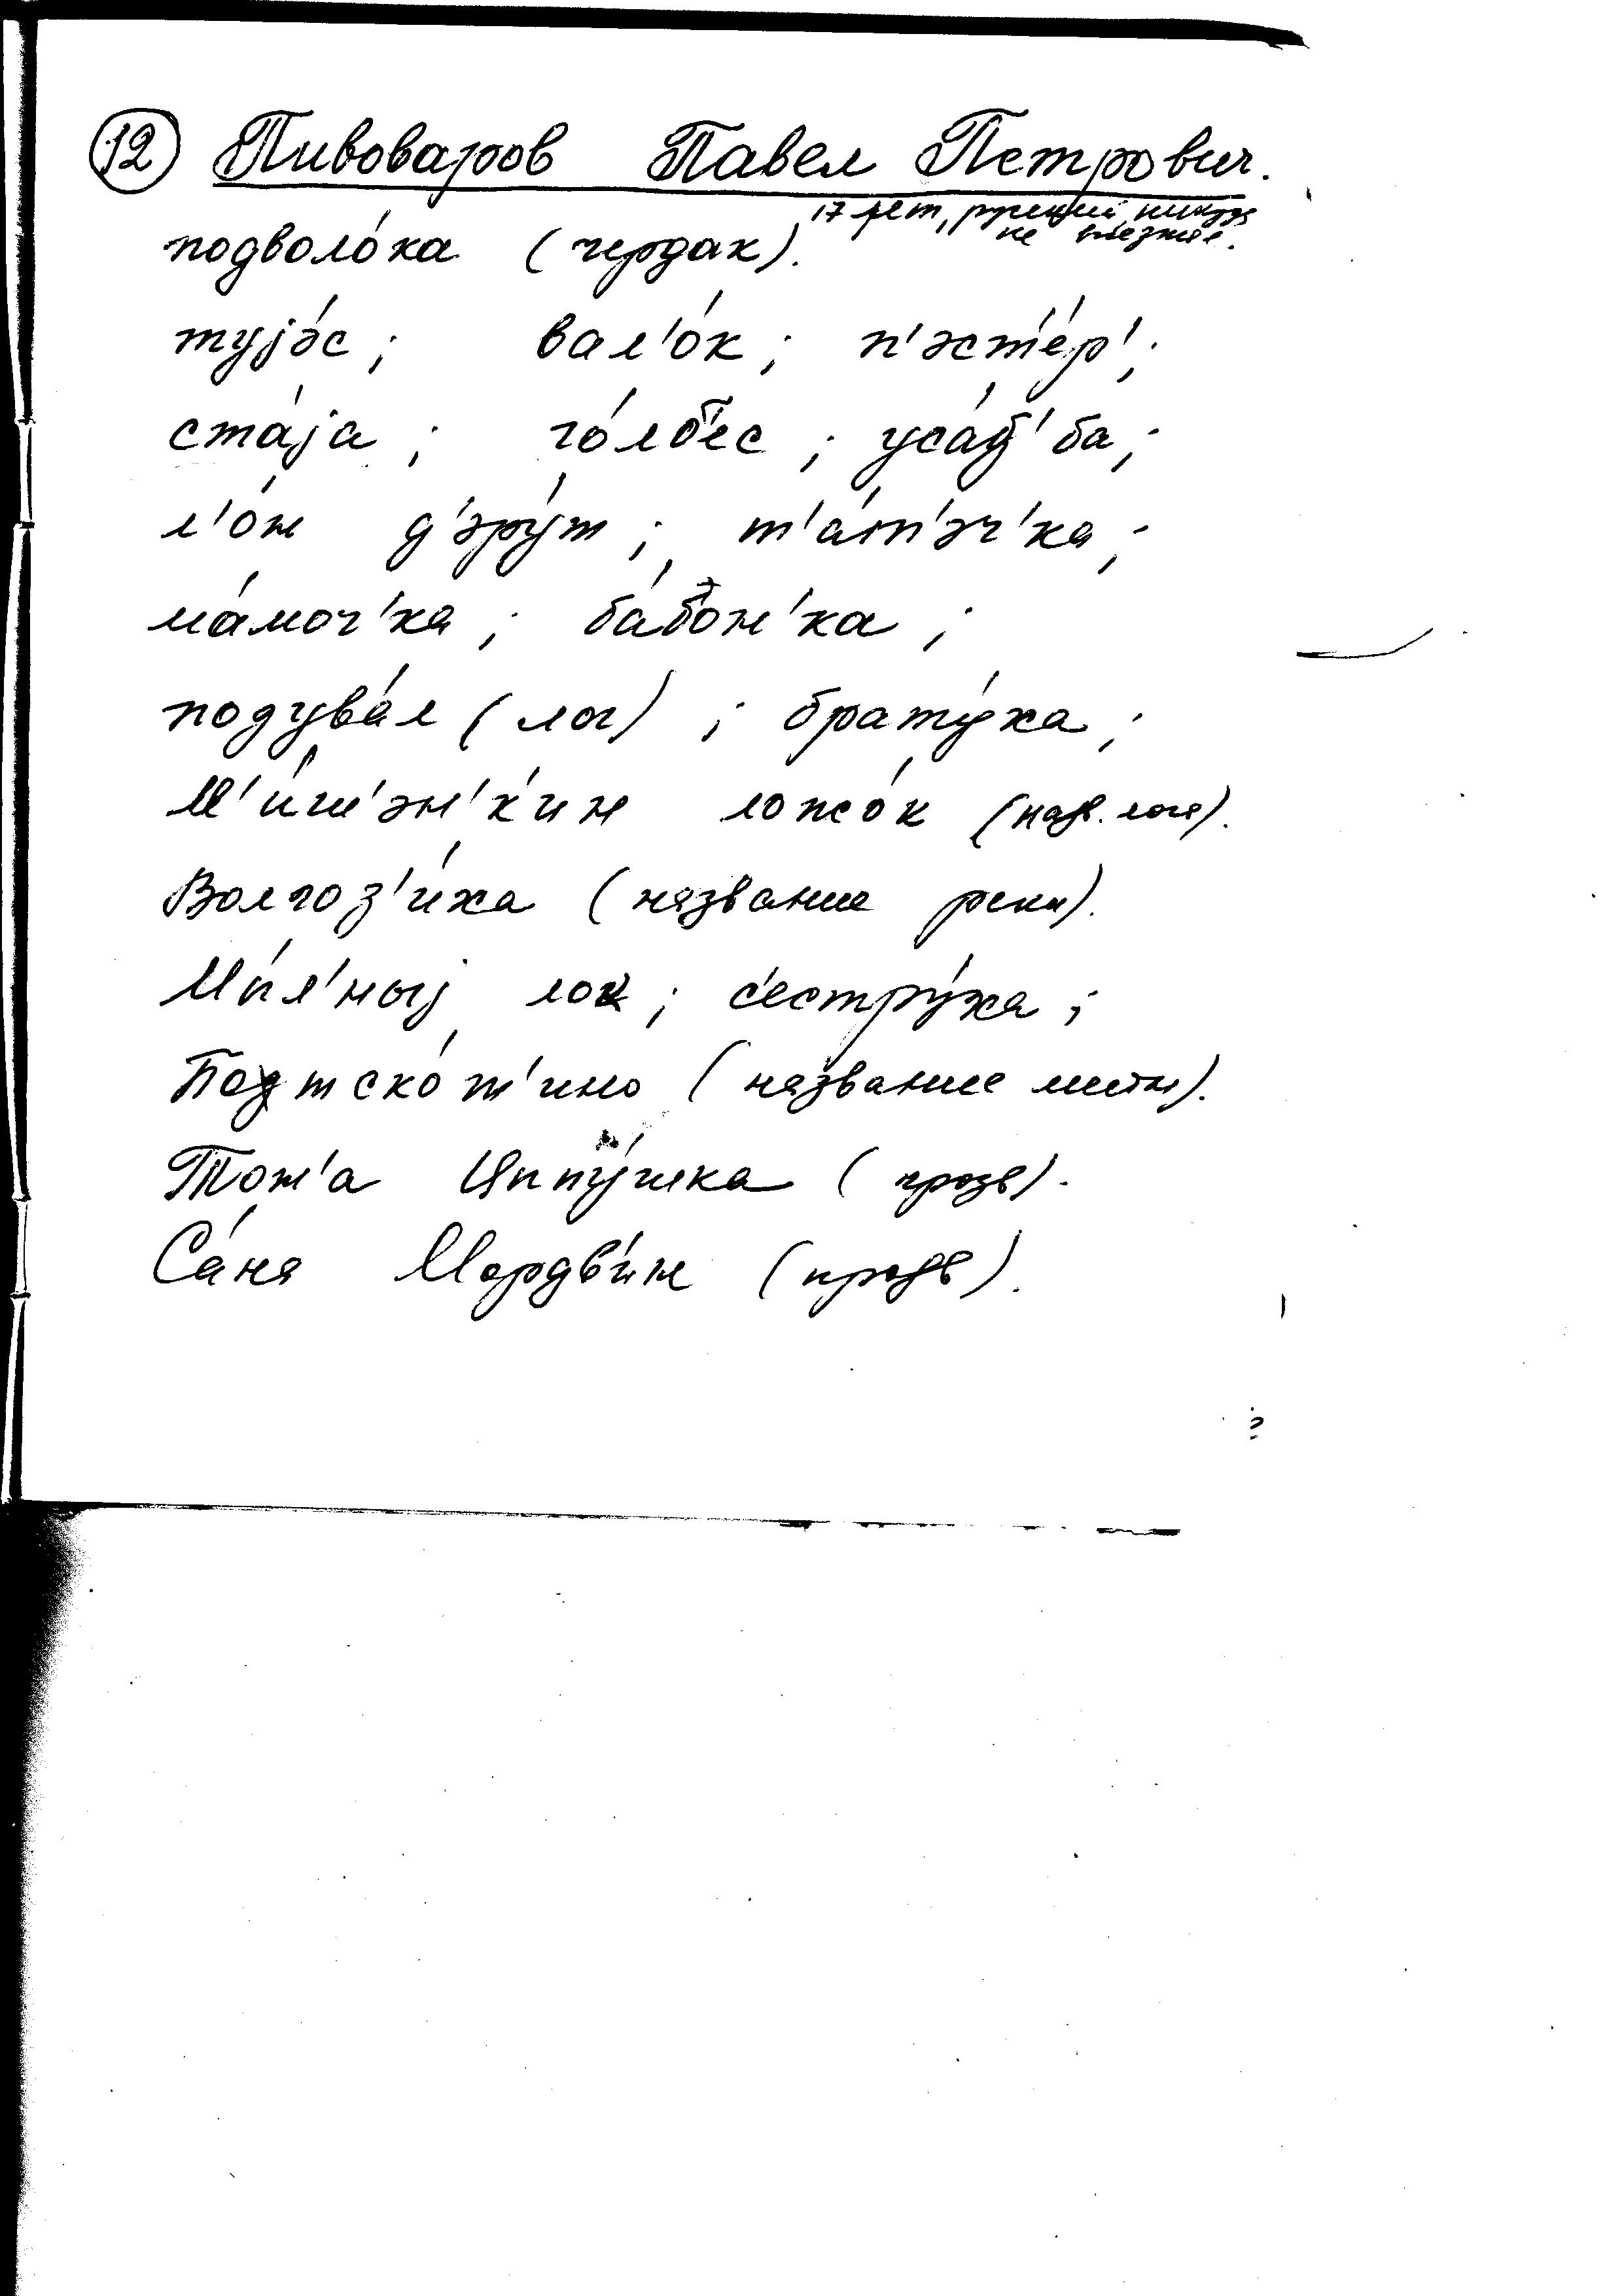 12 Пивоваров Павел Петрович.
17 лет, русский, никуда
не выезжал.
подволо́ка (чердак).
туjэ́с; вал'о́к; п'эст'е́р';
ста́jа; го́лб'ес; уса́д'ба;
л'о́н д'эру́т; т'а́т'эч'ка;
ма́моч'ка; ба́бон'ка;
подува́л (лог); брату́ха;
М'и́ш'эн'к'ин ложо́к (назв. лога).
Волгоз'и́ха (название реки).
Мы́л'ныj лок; с'естру́ха;
Потско́т'ино (название места).
Тон'а Ципу́шка (прозв).
Са́ня Мордв'и́н (прозв).